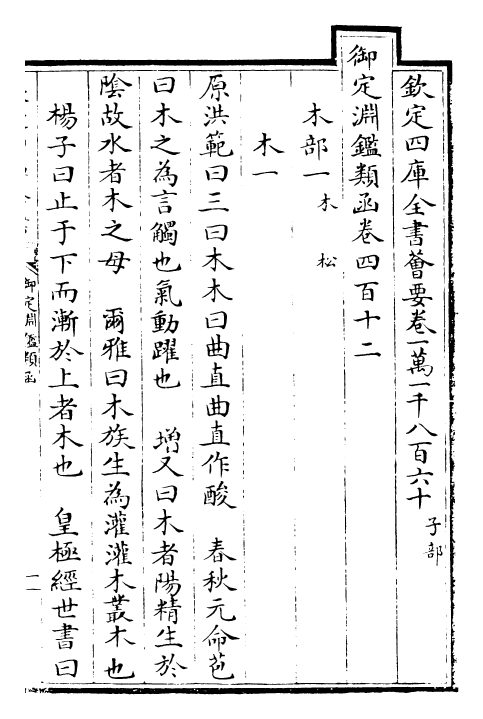 欽定四庫全書薈要卷一萬一千八百六十 子部
御定淵鑑類函卷四百十二
木部一 木 松
木一
原洪範曰三曰木木曰曲直曲直作酸 春秋元命苞
曰木之為言觸也氣動躍也 增又曰木者陽精生於
陰故水者木之母 爾雅曰木族生為灌灌木叢木也
楊子曰止于下而漸於上者木也 皇極經世書曰
御定淵鑑類函
一